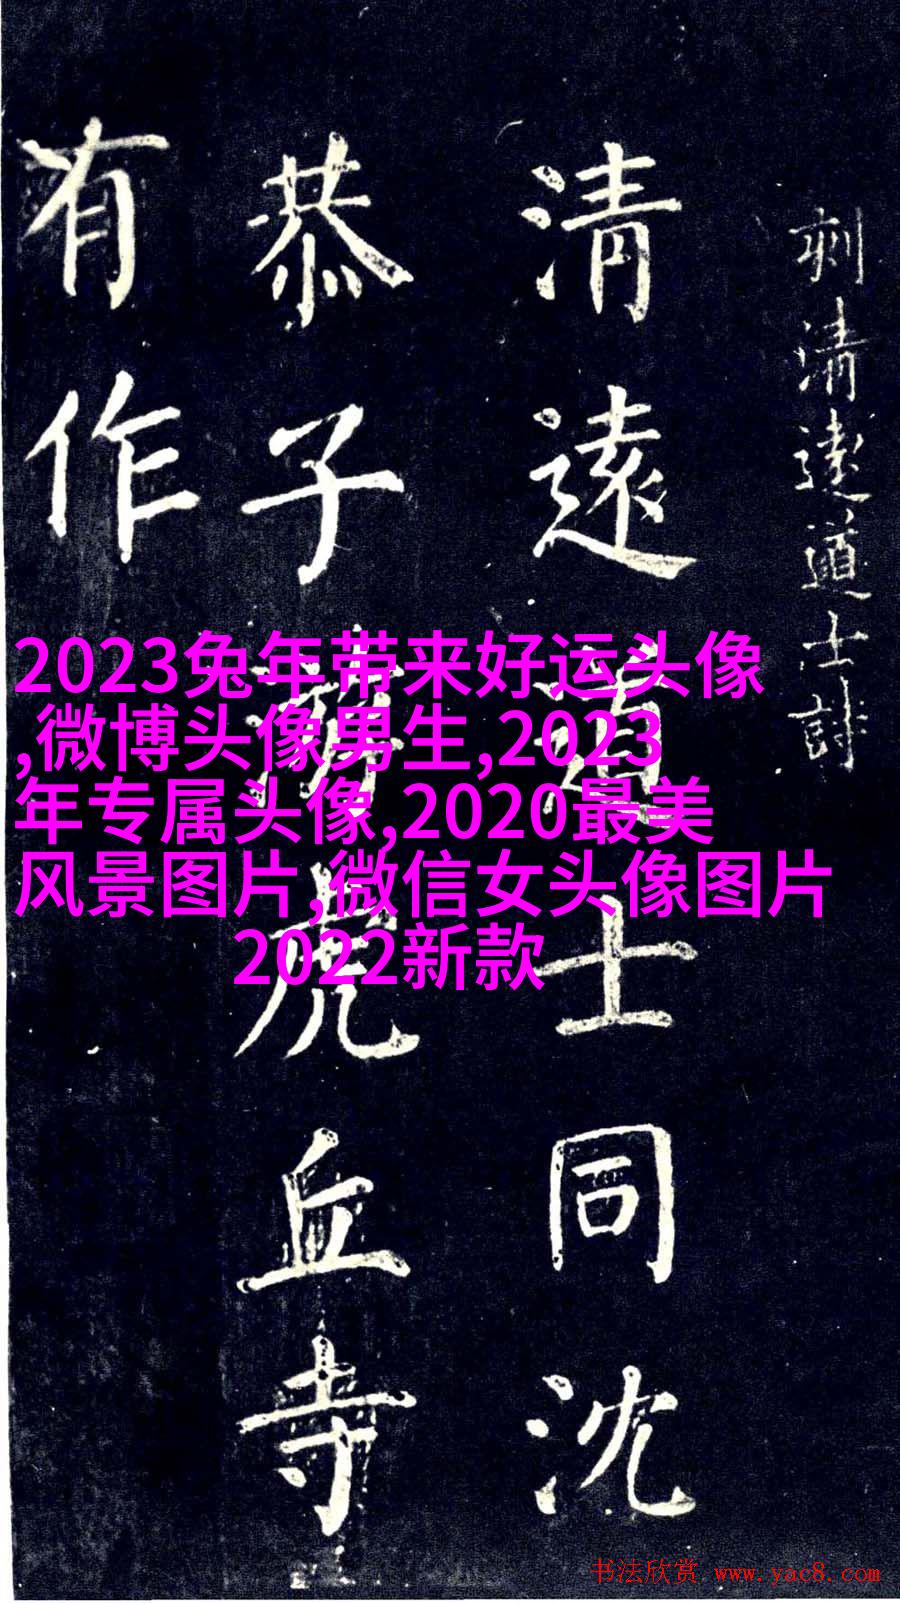 刻清遠道士詩
清遠道士同沈
恭子游虎丘寺
有作
2023兔年带来好运头像
,微博头像男生,2023
年专属头像,2020最美
风景图片,微信女头像图片
2022新款
书法欣赏 www.yac8.com